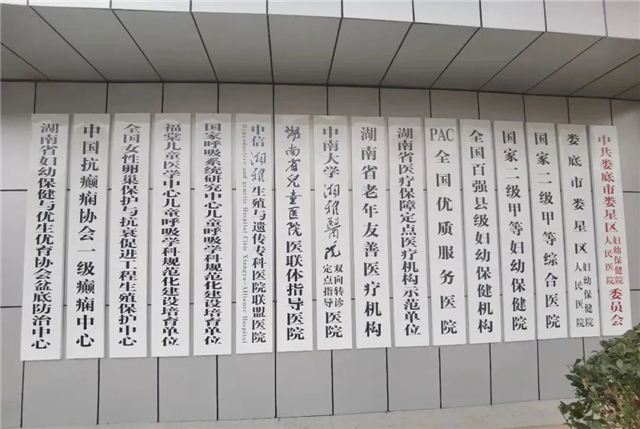 湖南省妇幼保健与优生优育协会盆底防治中心
中国抗癫痫协会一级癫痫中心
全国女性卵巢保护与抗衰促进工程生殖保护中心
福棠儿童医学中心儿童呼吸学科规范化建设培育单位
国家呼吸系统研究中心儿童呼吸学科规范化建设培育单位
中信湘雅生殖与遗传专科医院联盟医院
Reproductive and genetic Hospital Citic Xiangya-Alliance Hospital
湖南省儿童医院医联体指导医院
中南大学湘雅醫院双向转诊定点指导医院
湖南省老年友善医疗机构
湖南省医疗保障定点医疗机构示范单位
PAC全国优质服务医院
全国百强县级妇幼保健机构
国家二级甲等妇幼保健院
国家二级甲等综合医院
娄底市娄星区妇幼保健院人民医院
中共娄底市娄星区妇幼保健院人民医院委员会